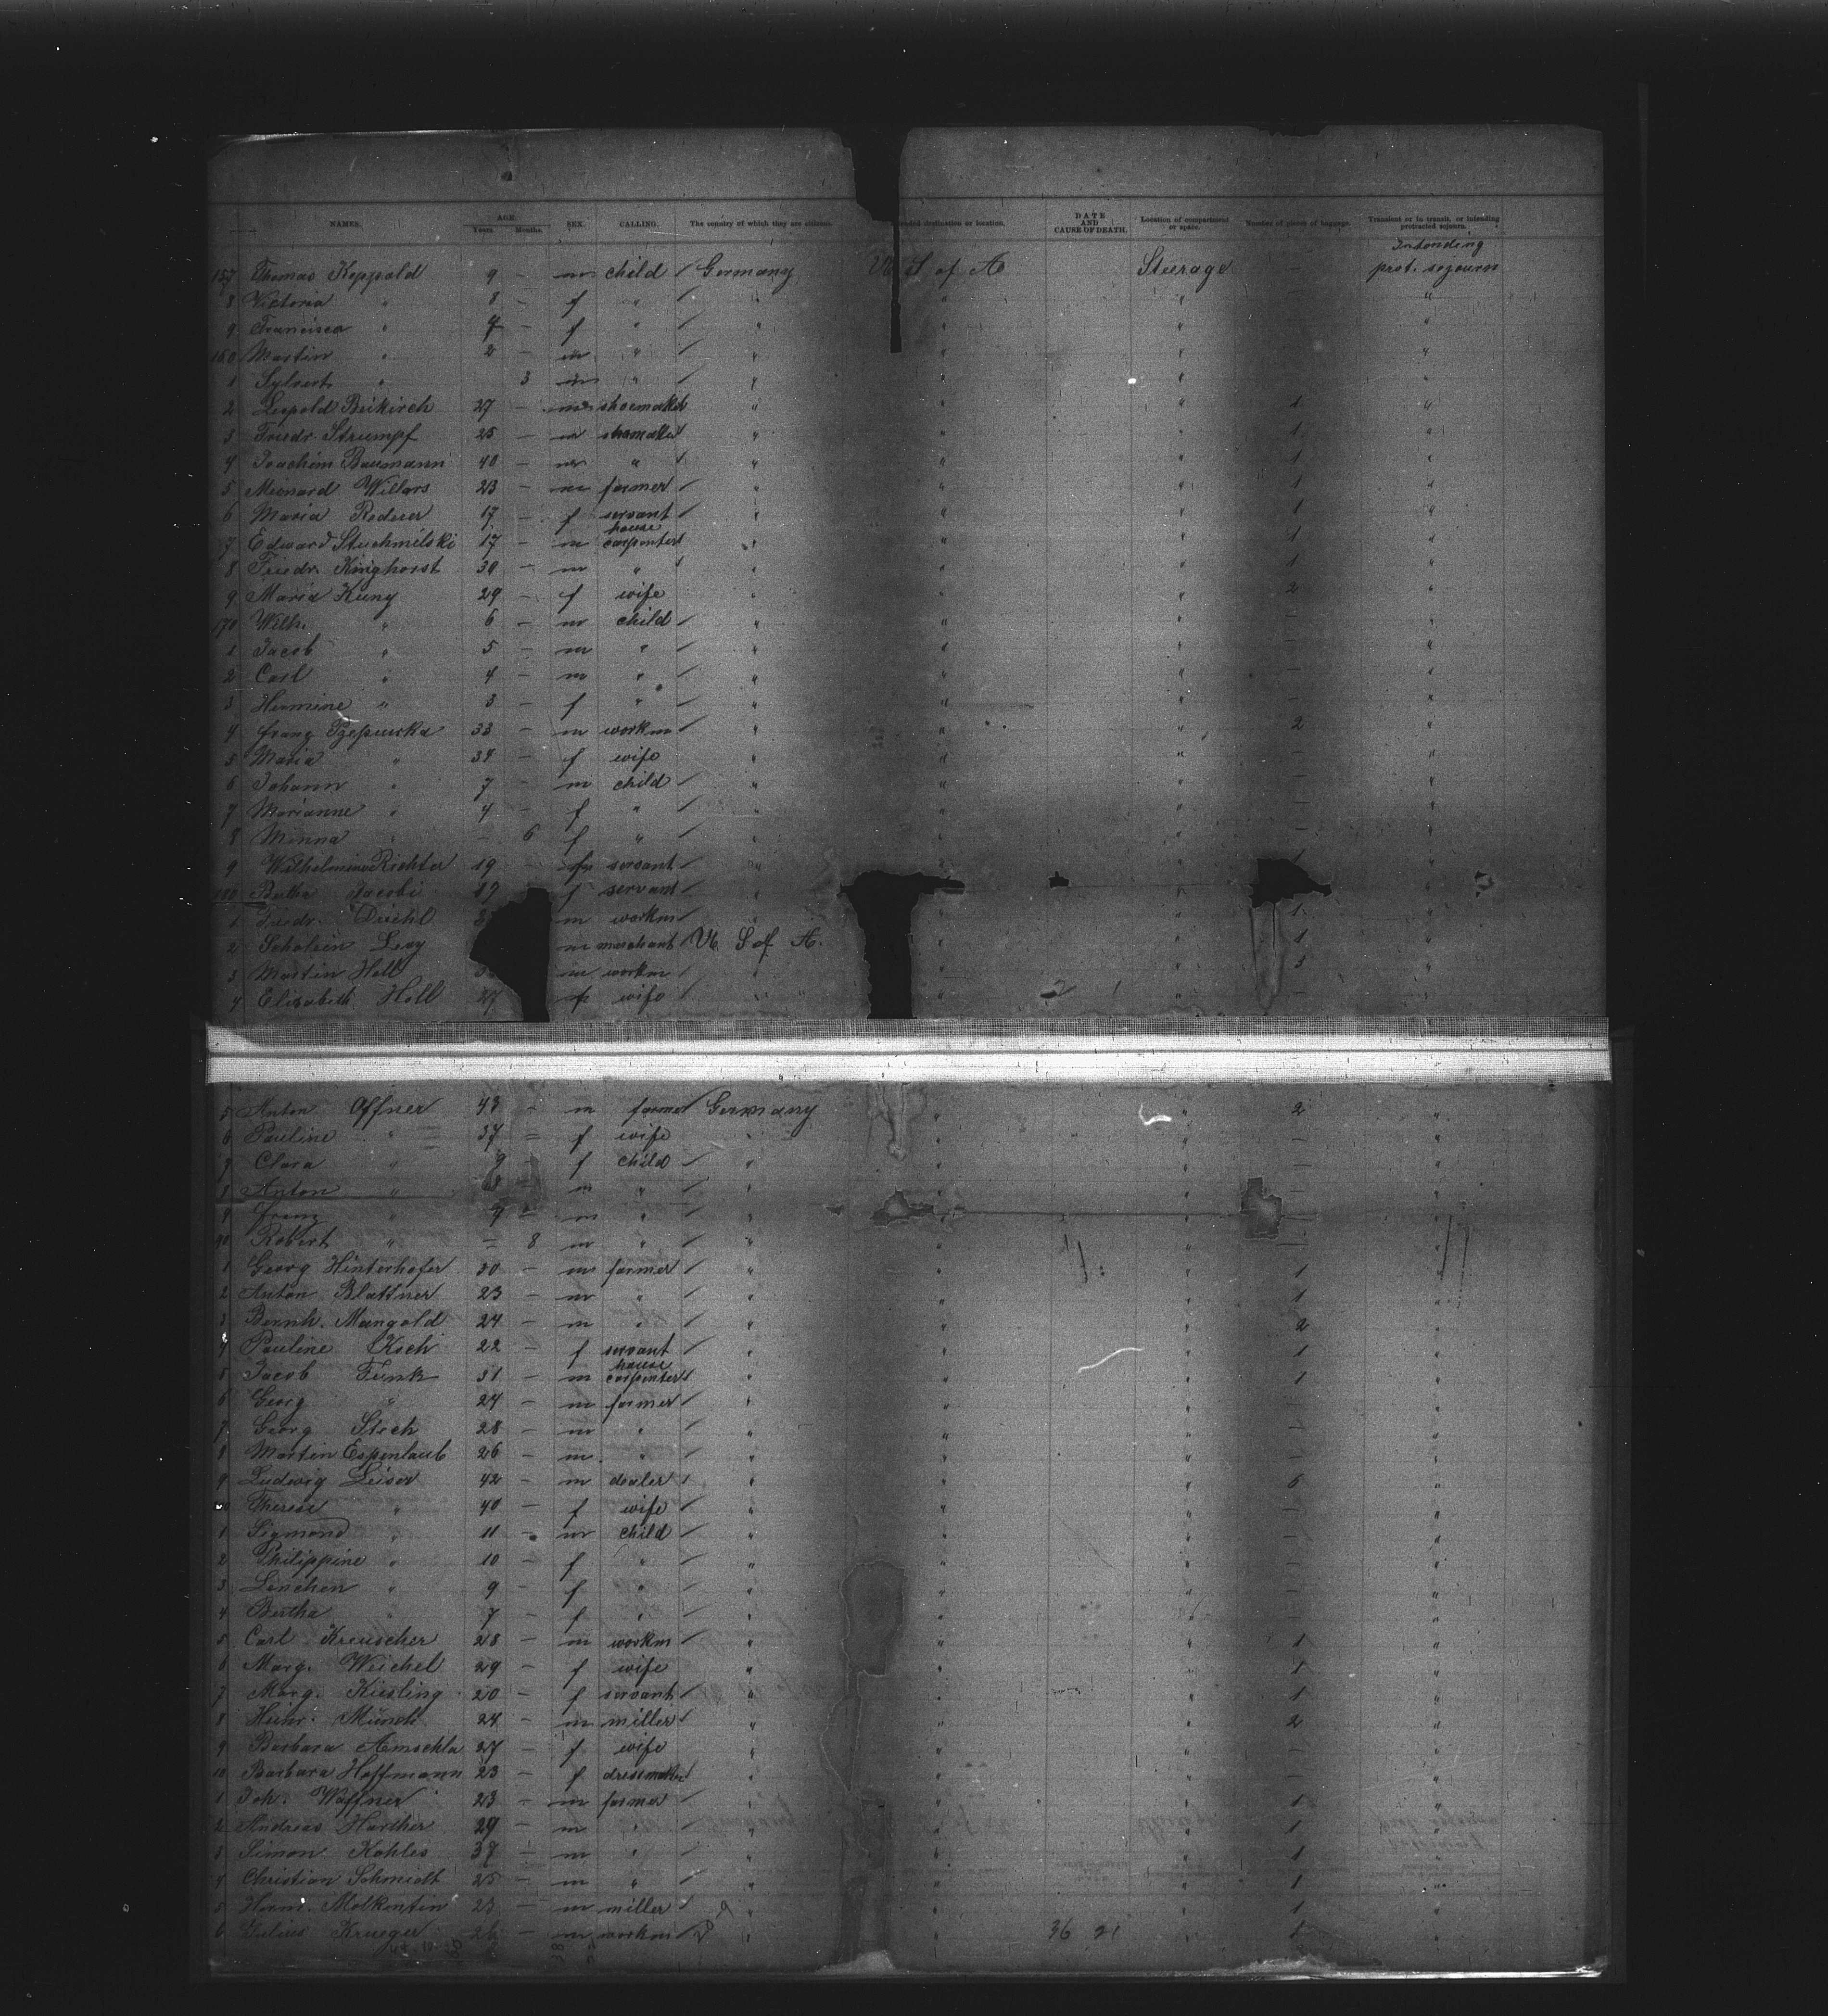 NAMES. AGE. Years. Months. SEX. CALLING. The country of which they are citizens. destination or location. DATE AND CAUSE OF DEATH. Location of compartment or space. Number of pieces of baggage. Transient or in transit, or intending protracted sojourn.
Intending
157 Thomas Keppold 9 – m child / Germany U. S of A Steerage – prot. sojourn
8 Victoria " 8 – f " / " " " "
9 Francisca " 7 – f " / " " " "
160 Martin " 2 – m " / " " " "
1 Sylvert " 3 m " / " " " "
2 Leopold Beikirch 27 – m shoemaker " " " 1 "
3 Friedr. Strumpf 25 – m shoemaker " " " 1 "
4 Joachim Baumann 40 – m " / " " " 1 "
5 Meinard Willars 23 – m farmer / " " " 1 "
6 Maria Rederer 17 – f servant / " " " 1 "
7 Edward Stuchmilski 17 – m house carpenter " " " 1 "
8 Friedr. Kinghorst 30 – m " / " " " 1 "
9 Maria Kuny 29 – f wife " " " 2 "
170 Wilh. " 6 – m child / " " " – "
1 Jacob " 5 – m " / " " " – "
2 Carl " 4 – m " / " " " – "
3 Hermine " 3 – f " / " " " – "
4 Franz 33 – m workm / " " " 2 "
5 Maria " 34 – f wife " " " – "
6 Johann " 7 – m child / " " " – "
7 Marianne " 4 – f " / " " " – "
8 Minna " – 6 f " / " " " – "
9 Wilhelmine Richter 19 f servant / " " " 1 "
180 Bertha Jacobi 19 f servant / " "
1 Friedr. Diehl m workm / " " " 1 "
2 Levy m merchant U. S of A. " " 1 "
3 Martin Holl m workm / " " " 3 "
4 Elisabeth Holl 27 f wife / " " 2 1 " – "
5 Anton Offner 43 – m farmer Germany " " 2 "
6 Pauline " 37 – f wife " " " – "
7 Clara " 9 – f child / " " " – "
8 Anton " m " / " " " – "
9 Franz " 4 – m " / " " " "
90 Robert " – 8 m " / " " " – "
1 Georg Hinterhofer 30 – m farmer / " " " 1 "
2 Anton Blattner 23 – m " / " " " 1 "
3 Bernh. Mangold 24 – m " / " " " 2 "
4 Pauline Koch 22 – f servant / " " " 1 "
5 Jacob Funk 31 – m house carpenter / " " " 1 "
6 Georg " 24 – m farmer / " " " – "
7 Georg 28 – m " / " " " – "
8 Martin Espenlaub 26 – m " / " " " – "
9 Ludwig Leiser 42 – m dealer / " " " 6 "
Therese " 40 – f wife / " " " – "
1 Sigmond " 11 – m child / " " " – "
2 Philippine " 10 – f " / " " " – "
3 Linchen " 9 – f " / " " " – "
4 Bertha " 7 – f " / " " " – "
5 Carl Kreuscher 28 – m workm / " " " 1 "
6 Marg. Weichel 29 – f wife " " " 1 "
7 Marg. Kiesling 20 – f servant / " " " 1 "
8 Heinr. Münch 24 – m miller / " " " 2 "
9 Barbara Amschla 27 – f wife " " " – "
10 Barbara Hoffmann 23 – f dressmaker " " " – "
1 Joh. Waffner 23 – m farmer / " " " 1 "
2 Andreas Harther 29 – m " / " " " 1 "
3 Simon Kohles 38 – m " / " " " 1 "
4 Christian Schmidt 25 – m " / " " " 1 "
5 Herm. Molkentin 23 – m miller / " " " 1 "
6 Julius Krueger 26 – m workm / " " 36 21 " 1 "